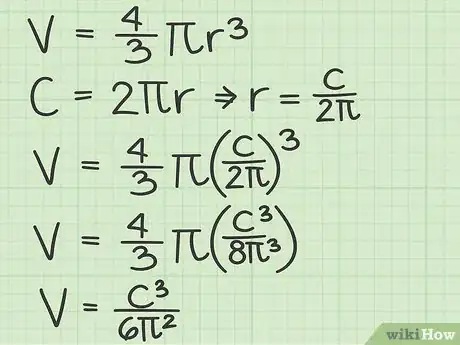 V = 4/3 πr³
C = 2πr ⇒ r = C/2π
V = 4/3 π(C/2π)³
V = 4/3 π(C³/8π³)
V = C³/6π²
wikiHow